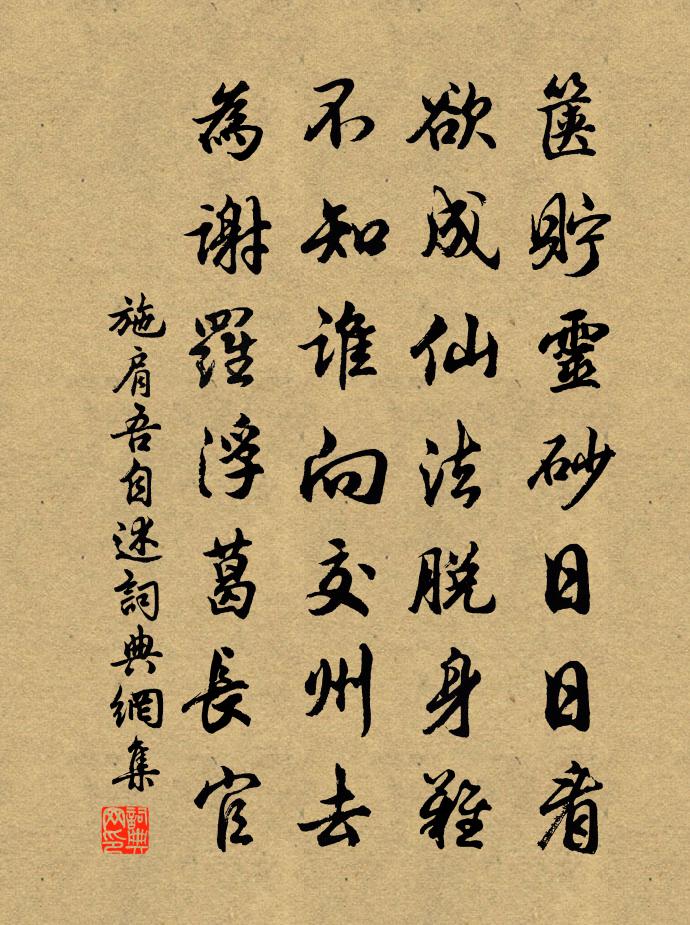 篋貯靈砂日日看
欲成仙法脫身難
不知誰向交州去
為謝羅浮葛長官
施肩吾自述詞典網集
詞典網印